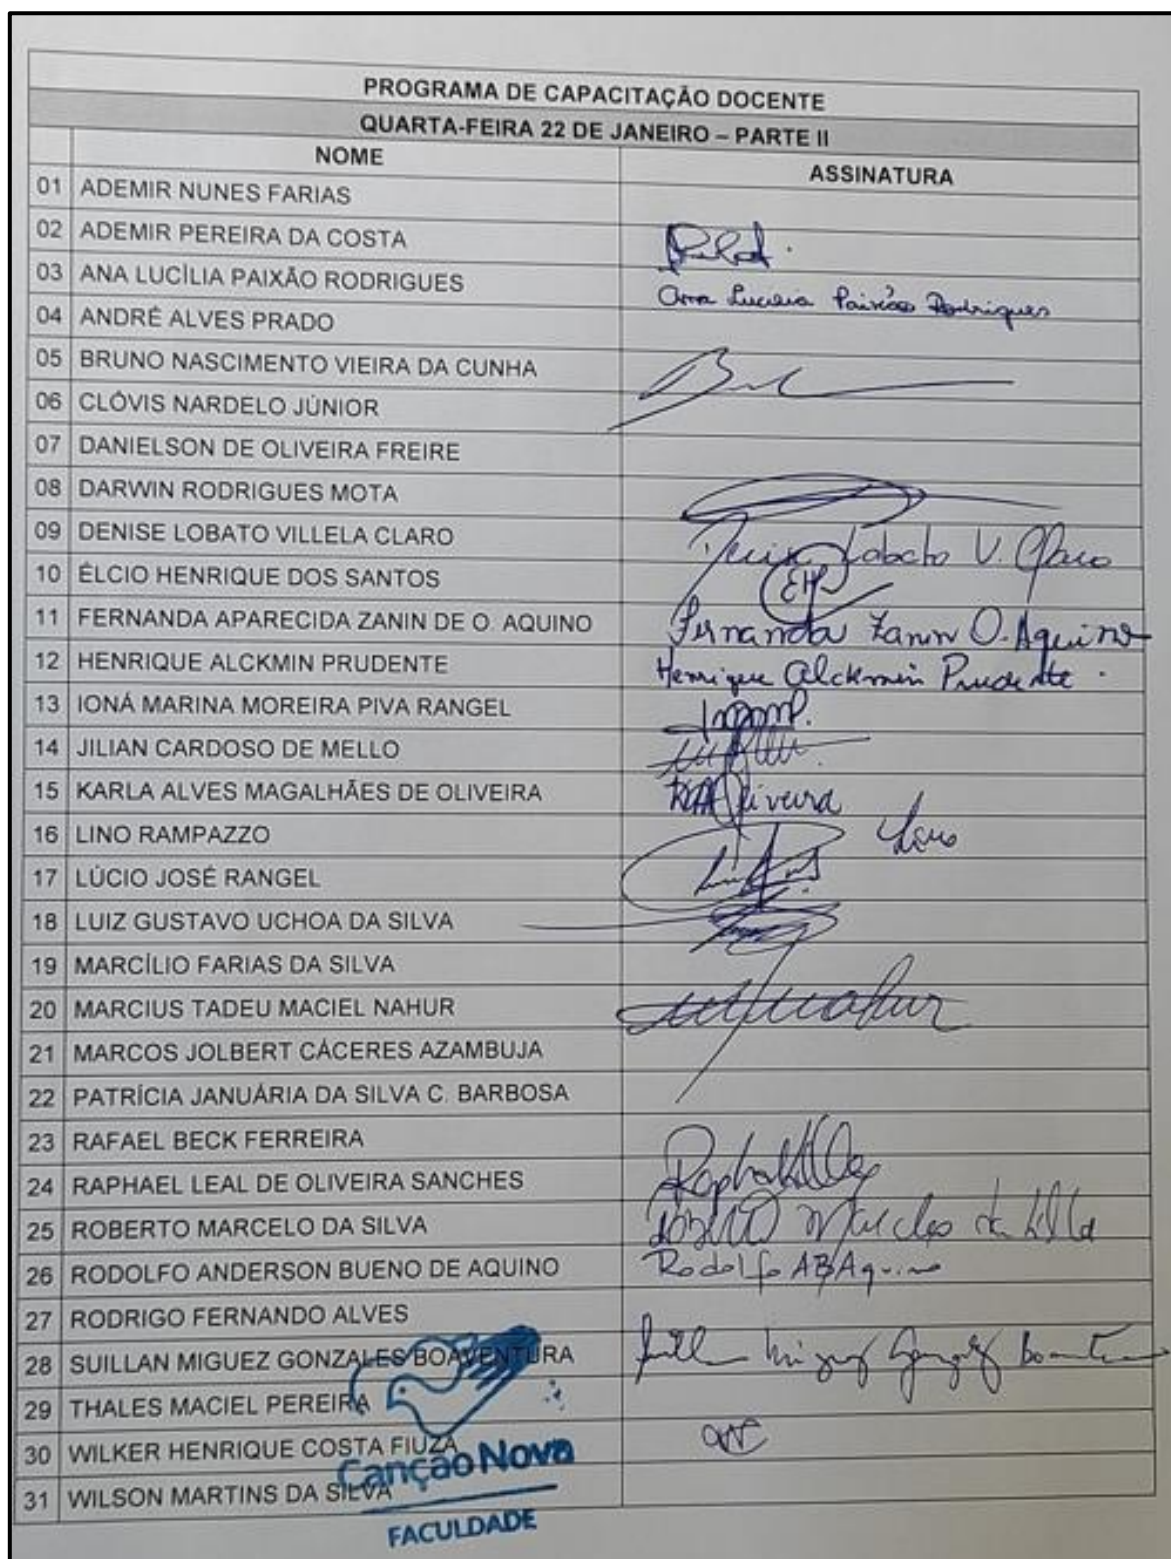 PROGRAMA DE CAPACITAÇÃO DOCENTE
QUARTA-FEIRA 22 DE JANEIRO – PARTE II
NOME ASSINATURA
01 ADEMIR NUNES FARIAS
02 ADEMIR PEREIRA DA COSTA
03 ANA LUCÍLIA PAIXÃO RODRIGUES Ana Lucília Paixão Rodrigues
04 ANDRÉ ALVES PRADO
05 BRUNO NASCIMENTO VIEIRA DA CUNHA
06 CLÓVIS NARDELO JÚNIOR
07 DANIELSON DE OLIVEIRA FREIRE
08 DARWIN RODRIGUES MOTA
09 DENISE LOBATO VILLELA CLARO Denise Lobato V. Claro
10 ÉLCIO HENRIQUE DOS SANTOS EHS
11 FERNANDA APARECIDA ZANIN DE O. AQUINO Fernanda Zanin O. Aquino
12 HENRIQUE ALCKMIN PRUDENTE Henrique Alckmin Prudente.
13 IONÁ MARINA MOREIRA PIVA RANGEL
14 JILIAN CARDOSO DE MELLO
15 KARLA ALVES MAGALHÃES DE OLIVEIRA KAMOliveira
16 LINO RAMPAZZO Lino
17 LÚCIO JOSÉ RANGEL
18 LUIZ GUSTAVO UCHOA DA SILVA
19 MARCÍLIO FARIAS DA SILVA
20 MARCIUS TADEU MACIEL NAHUR
21 MARCOS JOLBERT CÁCERES AZAMBUJA
22 PATRÍCIA JANUÁRIA DA SILVA C. BARBOSA
23 RAFAEL BECK FERREIRA
24 RAPHAEL LEAL DE OLIVEIRA SANCHES
25 ROBERTO MARCELO DA SILVA Roberto Marcelo da Silva
26 RODOLFO ANDERSON BUENO DE AQUINO Rodolfo ABAquino
27 RODRIGO FERNANDO ALVES
28 SUILLAN MIGUEZ GONZALES BOAVENTURA Suillan Miguez Gonzalez Boaventura
29 THALES MACIEL PEREIRA
30 WILKER HENRIQUE COSTA FIUZA
31 WILSON MARTINS DA SILVA
Canção Nova
FACULDADE